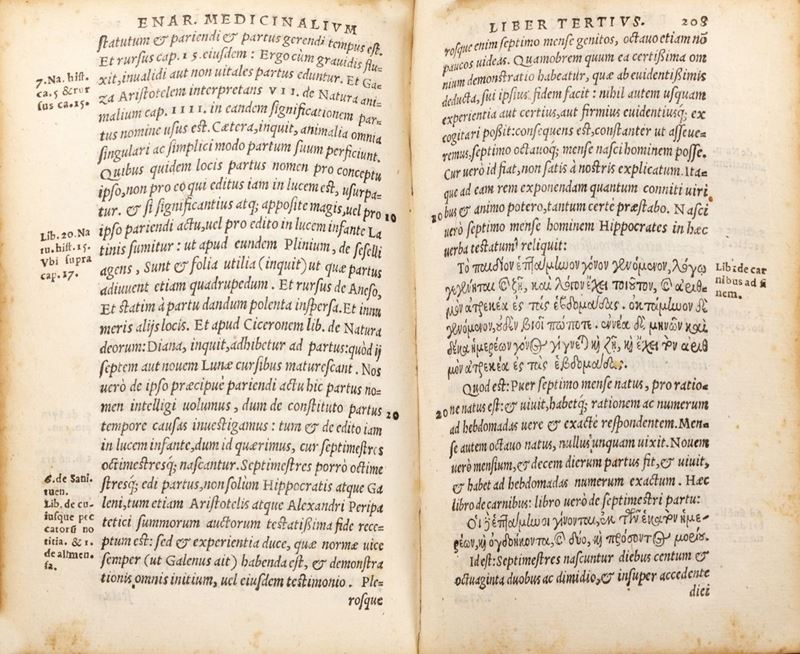 ENAR. MEDICINALIVM
statutum & pariendi & partus gerendi tempus est.
Et rursus cap. 15. eiusdem: Ergo cùm grauidis flu-
xit, inualidi aut non uitales partus eduntur. Et Ga-
za Aristotelem interpretans VII. de Natura ani-
malium cap. IIII. in eandem significationem par-
tus nomine usus est. Cætera, inquit, animalia omnia
singulari ac simplici modo partum suum perficiunt.
Quibus quidem locis partus nomen pro conceptu
ipso, non pro eo qui editus iam in lucem est, usurpa-
tur. & si significantius atq; apposite magis, uel pro
ipso pariendi actu, uel pro edito in lucem infante La
tinis sumitur: ut apud eundem Plinium, de seseli
agens, Sunt & folia utilia (inquit) ut quæ partus
adiuuent etiam quadrupedum. Et rursus de Aneso,
Et statim à partu dandum polenta inspersa. Et innu
meris alijs locis. Et apud Ciceronem lib. de Natura
deorum: Diana, inquit, adhibetur ad partus: quòd ij
septem aut nouem Lunæ cursibus maturescant. Nos
uerò de ipso præcipuè pariendi actu hic partus no-
men intelligi uolumus, dum de constituto partus
tempore causas inuestigamus: tum & de edito iam
in lucem infante, dum id quærimus, cur septimestres
octimestresq; nascantur. Septimestres porrò octime
stresq; edi partus, non solùm Hippocratis atque Ga
leni, tum etiam Aristotelis atque Alexandri Peripa
tetici summorum auctorum testatissima fide rece-
ptum est: sed & experientia duce, quæ normæ uice
semper (ut Galenus ait) habenda est, & demonstra
tionis omnis initium, uel eiusdem testimonio. Ple-
rosque
7. Na. hist.
ca. 5 & rur
sus ca. 15.
Lib. 20. Na
tu. hist. 15.
Vbi supra
cap. 17.
6. de Sani.
tuen.
Lib. de cu-
iusque pec
catorū no
titia. & 1.
de alimen.
fa.
10
20
LIBER TERTIVS. 208
rosque enim septimo mense genitos, octauo etiam nō
paucos uideas. Quamobrem quum ea certißima om
nium demonstratio habeatur, quæ ab euidentißimis
deducta, sui ipsius fidem facit: nihil autem usquam
experientia aut certius, aut firmius euidentiusq; ex
cogitari poßit: consequens est, constanter ut asseue-
remus, septimo octauoq; mense nasci hominem posse.
Cur uerò id fiat, non satis à nostris explicatum. Ita-
que ad eam rem exponendam quantum conniti uiri
bus & animo potero, tantum certè præstabo. Nasci
uerò septimo mense hominem Hippocrates in hæc
uerba testatum reliquit:
Τὸ παιδίον ἑπτάμηνον γόνον γενόμενον, λόγῳ
γεγένηται καὶ ζῇ, καὶ λόγον ἔχει τοιοῦτον, καὶ ἀριθ-
μὸν ἀτρεκέα ἐς τὰς ἑβδομάδας. ὀκτάμηνον δὲ
γενόμενον, οὐδὲν βιοῖ πώποτε. ἐννέα δὲ μηνῶν καὶ
δέκα ἡμερέων γόνος γίγνεται καὶ ζῇ, καὶ ἔχει τὸν ἀριθ
μὸν ἀτρεκέα ἐς τὰς ἑβδομάδας.
Quod est: Puer septimo mense natus, pro ratio-
ne natus est: & uiuit, habetq; rationem ac numerum
ad hebdomadas uere & exactè respondentem. Men-
se autem octauo natus, nullus unquam uixit. Nouem
uerò mensium, & decem dierum partus fit, & uiuit,
& habet ad hebdomadas numerum exactum. Hæc
libro de carnibus: libro uerò de septimestri partu:
Οἱ δὲ ἑπτάμηνοι γίνονται, ἐκ τῶν ἑκατὸν ἡμε-
ρέων, καὶ ὀγδοήκοντα, καὶ δύο, καὶ προσόντος μορίου.
Id est: Septimestres nascuntur diebus centum &
octuaginta duobus ac dimidio, & insuper accedente
diei
Lib. de car
nibus ad fi
nem.
10
20